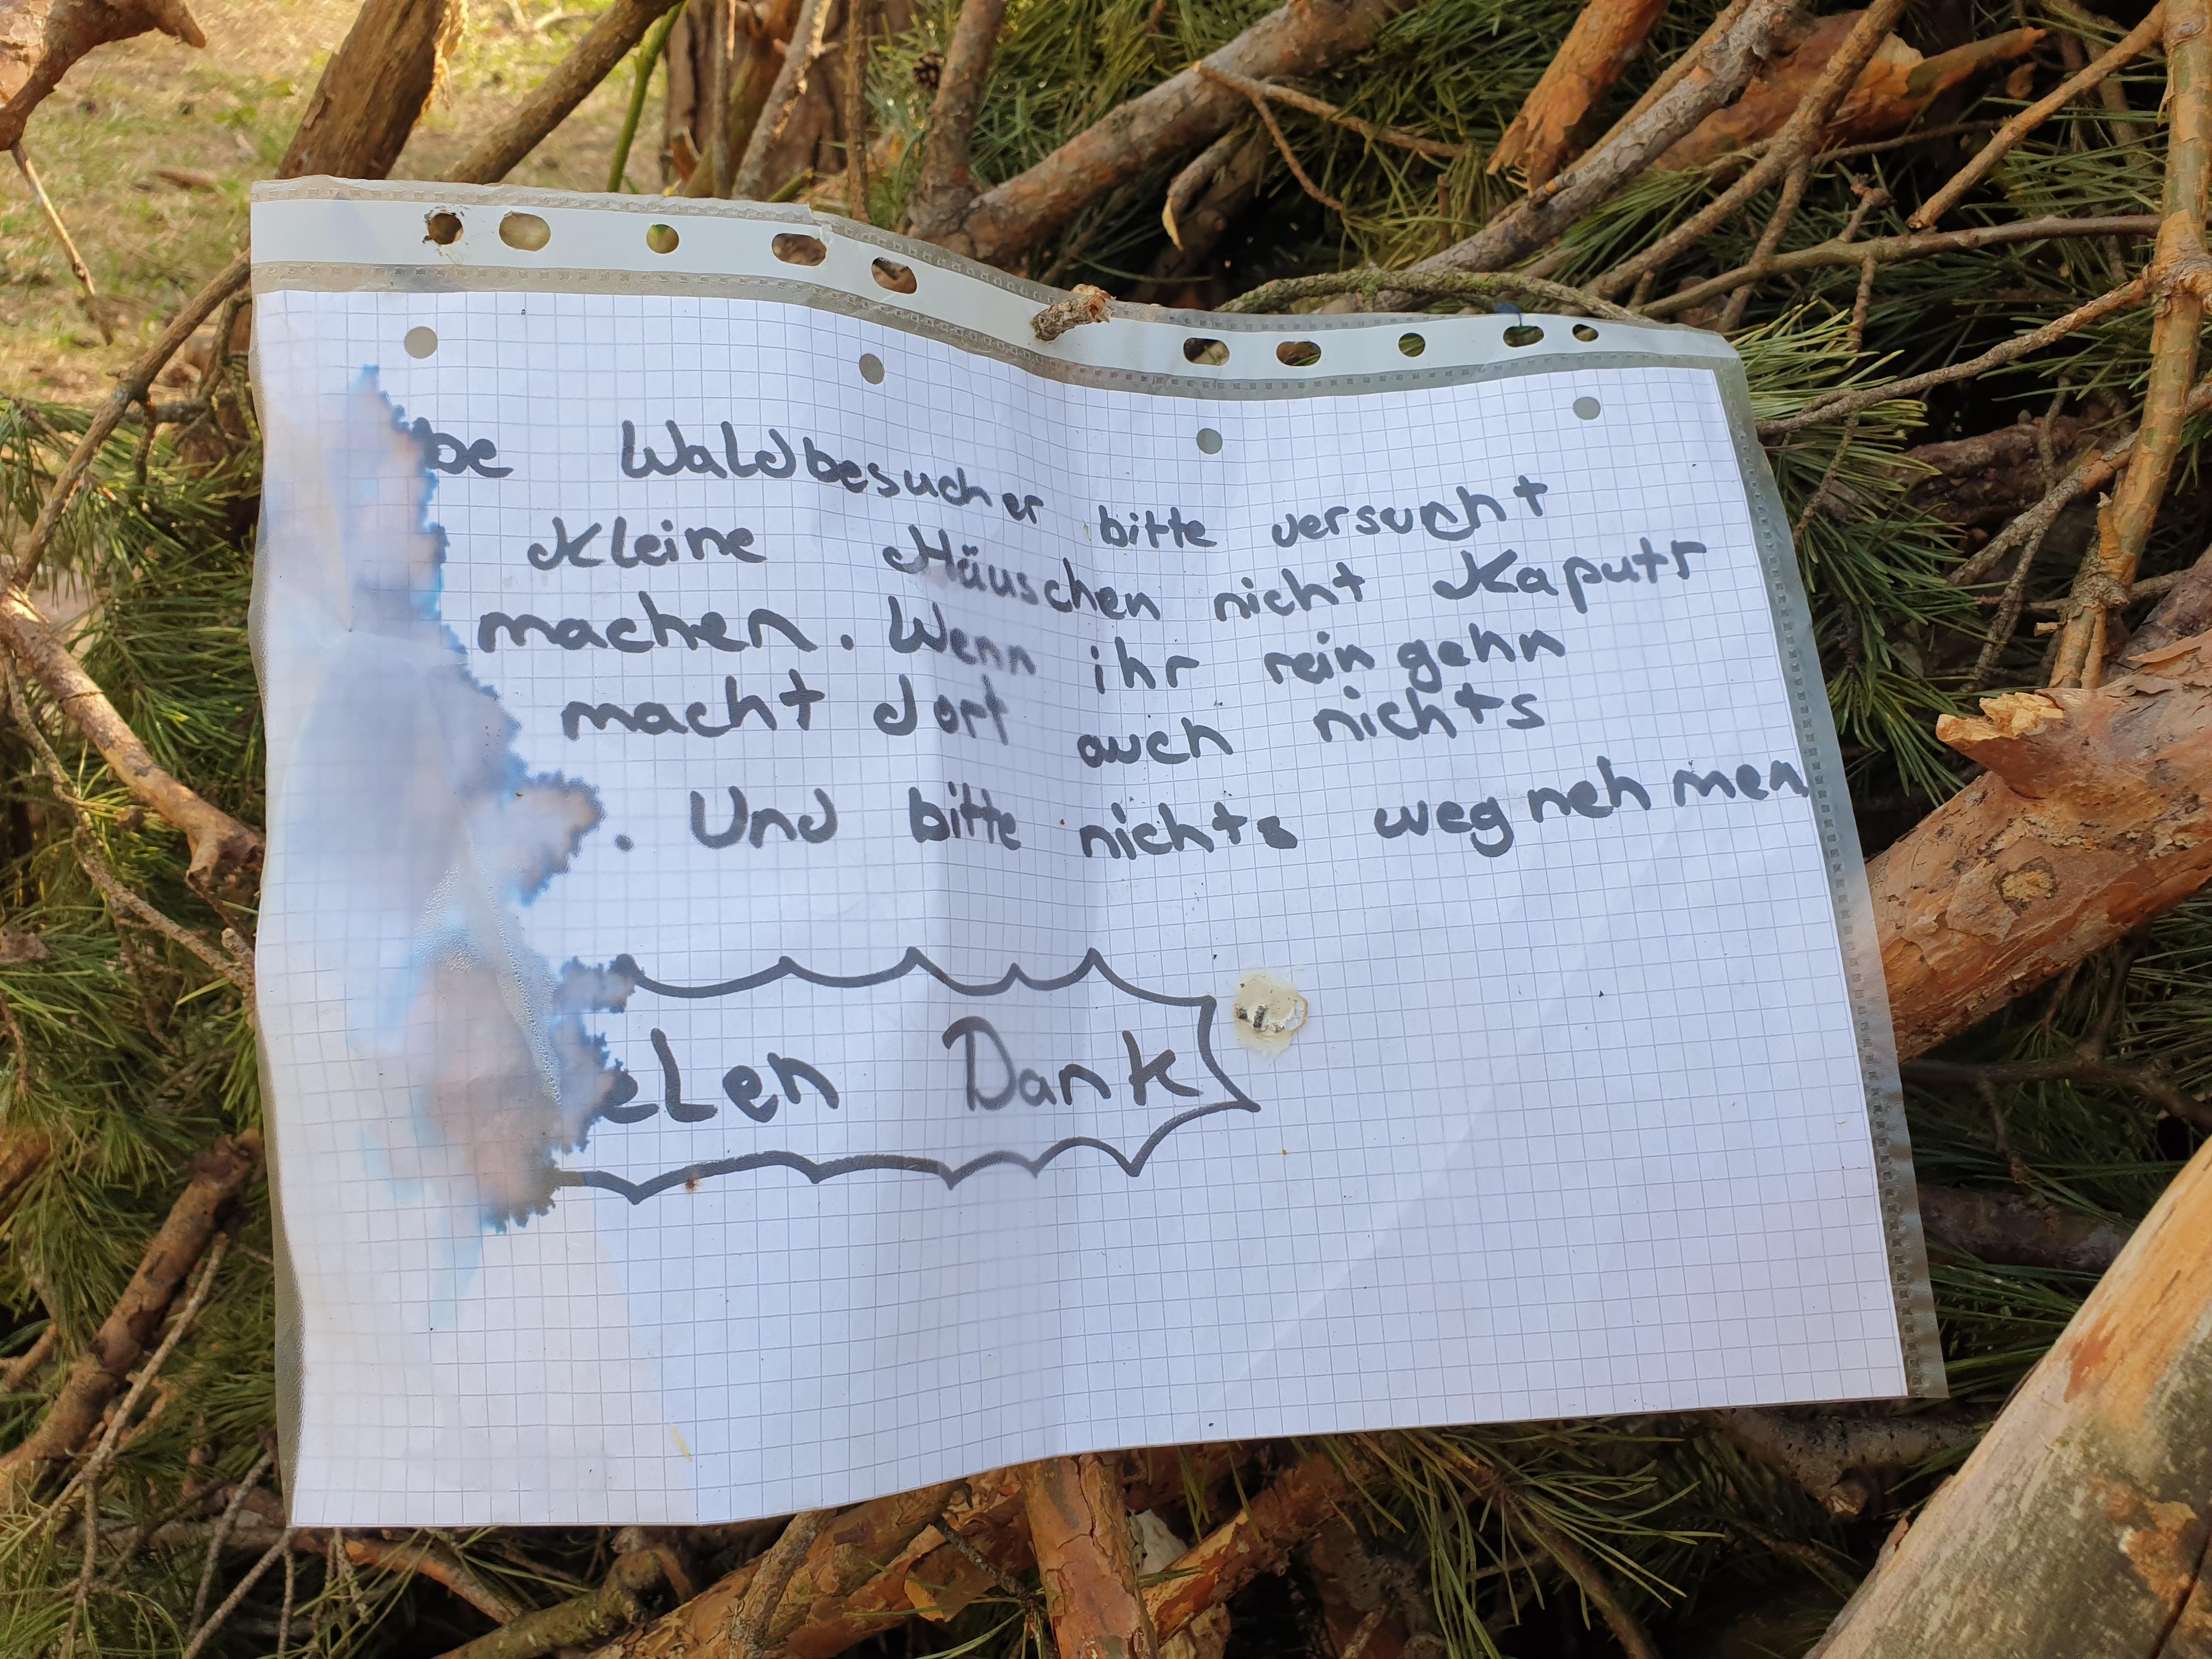 be Waldbesucher bitte versucht
kleine Häuschen nicht Kaputt
machen. Wenn ihr rein gehn
macht dort auch nichts
. Und bitte nichts wegnehmen
elen Dank